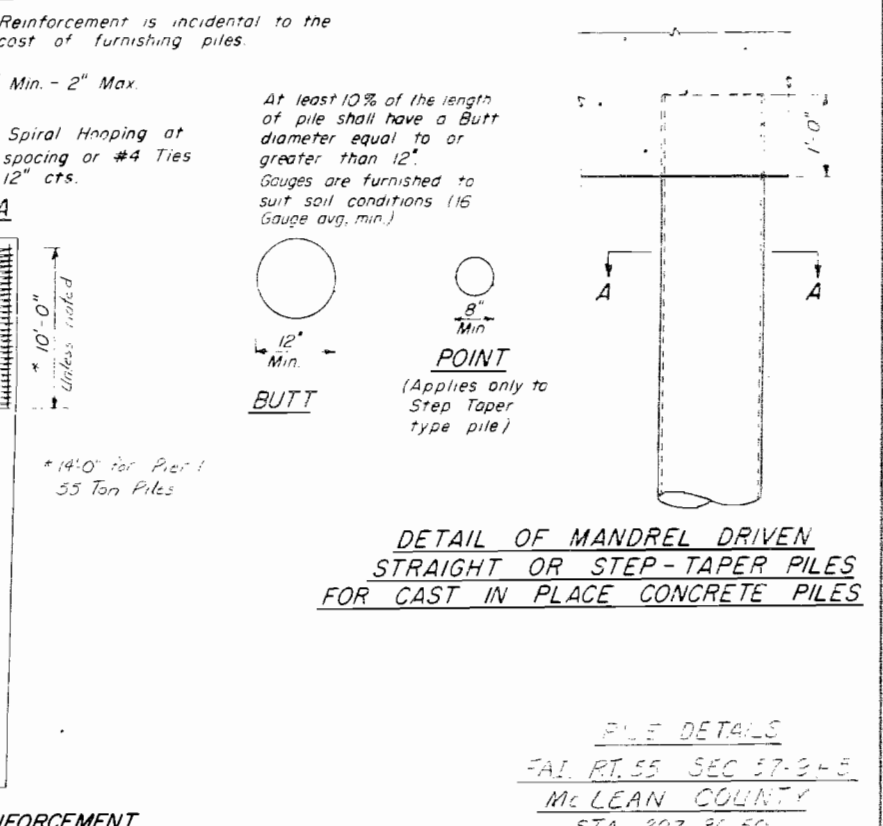 Reinforcement is incidental to the
cost of furnishing piles.
Min. - 2" Max.
Spiral Hooping at
spacing or #4 Ties
12" cts.
A
* 10'-0"
Unless noted
* 14'-0" for Pier 1
55 Ton Piles
At least 10% of the length
of pile shall have a Butt
diameter equal to or
greater than 12".
Gauges are furnished to
suit soil conditions (16
Gauge avg. min.)
12"
Min.
BUTT
8"
Min
POINT
(Applies only to
Step Taper
type pile)
1'-0"
A
A
DETAIL OF MANDREL DRIVEN
STRAIGHT OR STEP-TAPER PILES
FOR CAST IN PLACE CONCRETE PILES
PILE DETAILS
F.A.I. RT. 55 SEC
McLEAN COUNTY
STA.